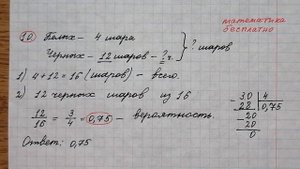 математика
бесплатно
10. Белых - 4 шара
Черных - 12 шаров - ? ч. } ? шаров
1) 4+12=16 (шаров) - всего.
2) 12 черных шаров из 16
12/16 = 3/4 = 0,75 - вероятность.
Ответ: 0,75
-30 | 4
28 | 0,75
-20
20
0